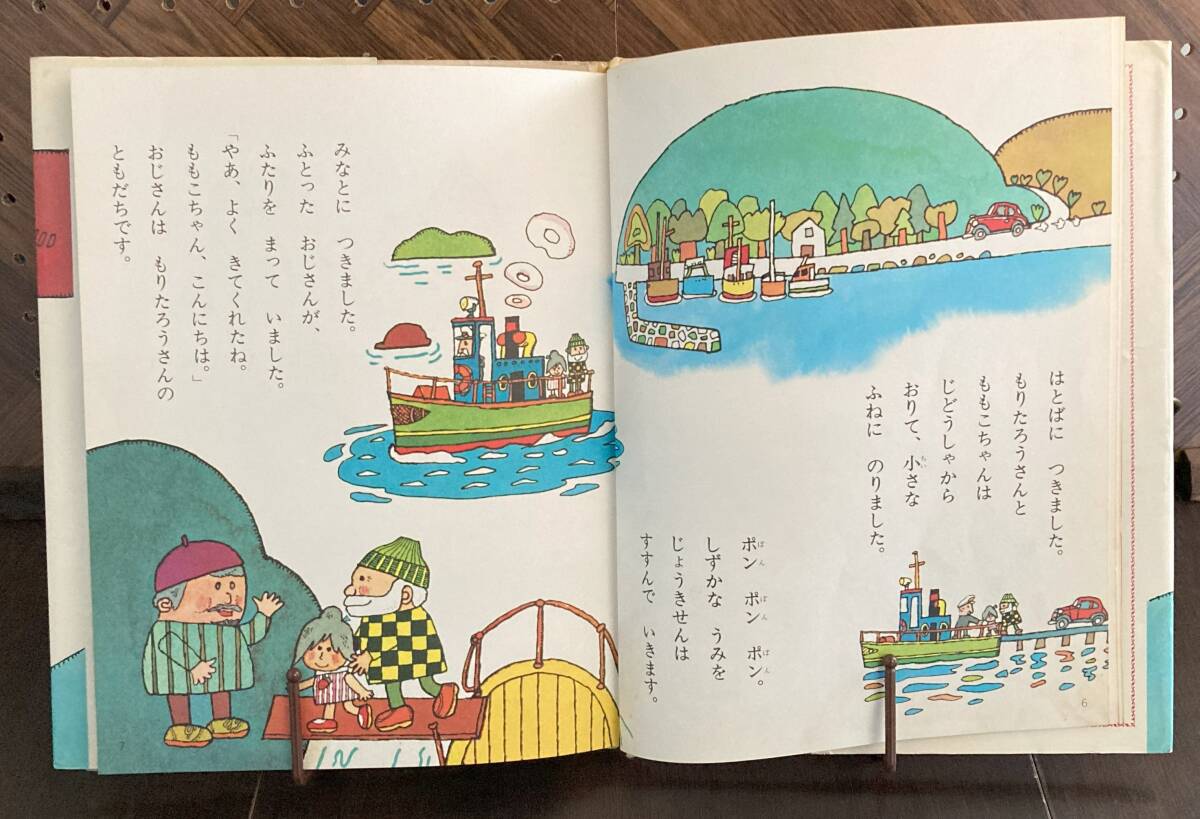 はとばに つきました。
もりたろうさんと
ももこちゃんは
じどうしゃから
おりて、小さな
ふねに のりました。
ポン ポン ポン。
しずかな うみを
じょうきせんは
すすんで いきます。
6
みなとに つきました。
ふとった おじさんが、
ふたりを まって いました。
「やあ、よく きてくれたね。
ももこちゃん、こんにちは。」
おじさんは もりたろうさんの
ともだちです。
7